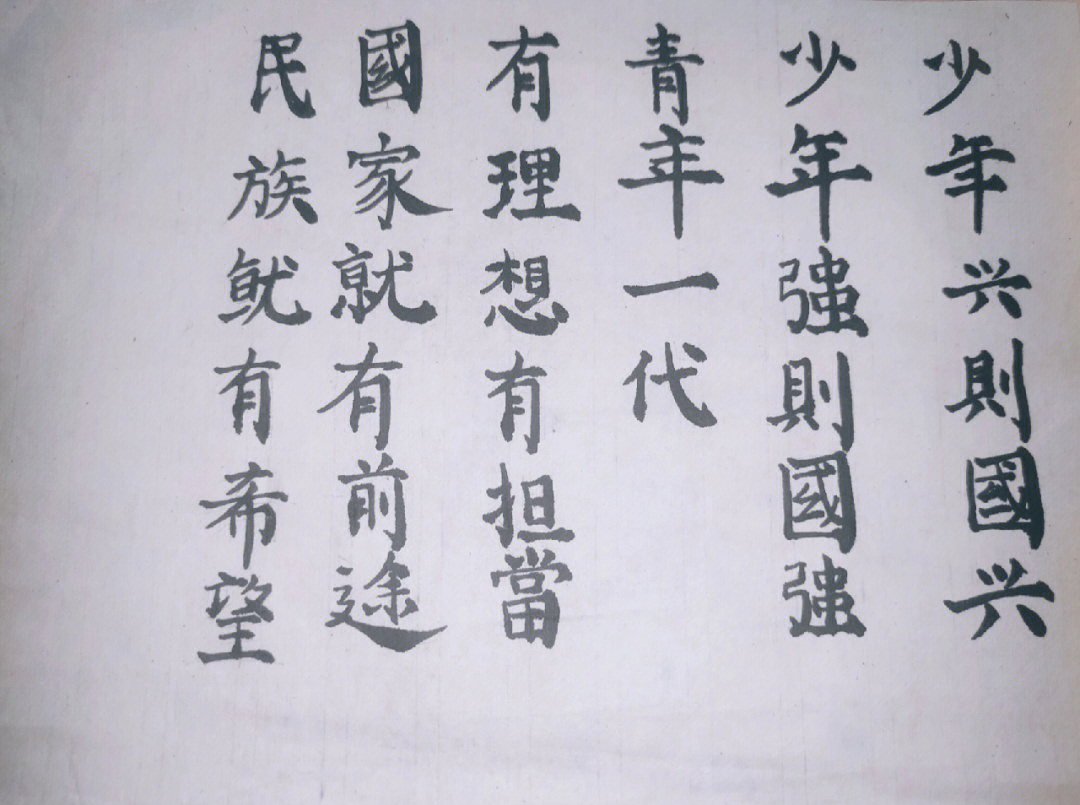 少年兴則國兴
少年強則國強
青年一代
有理想有担當
國家就有前途
民族就有希望